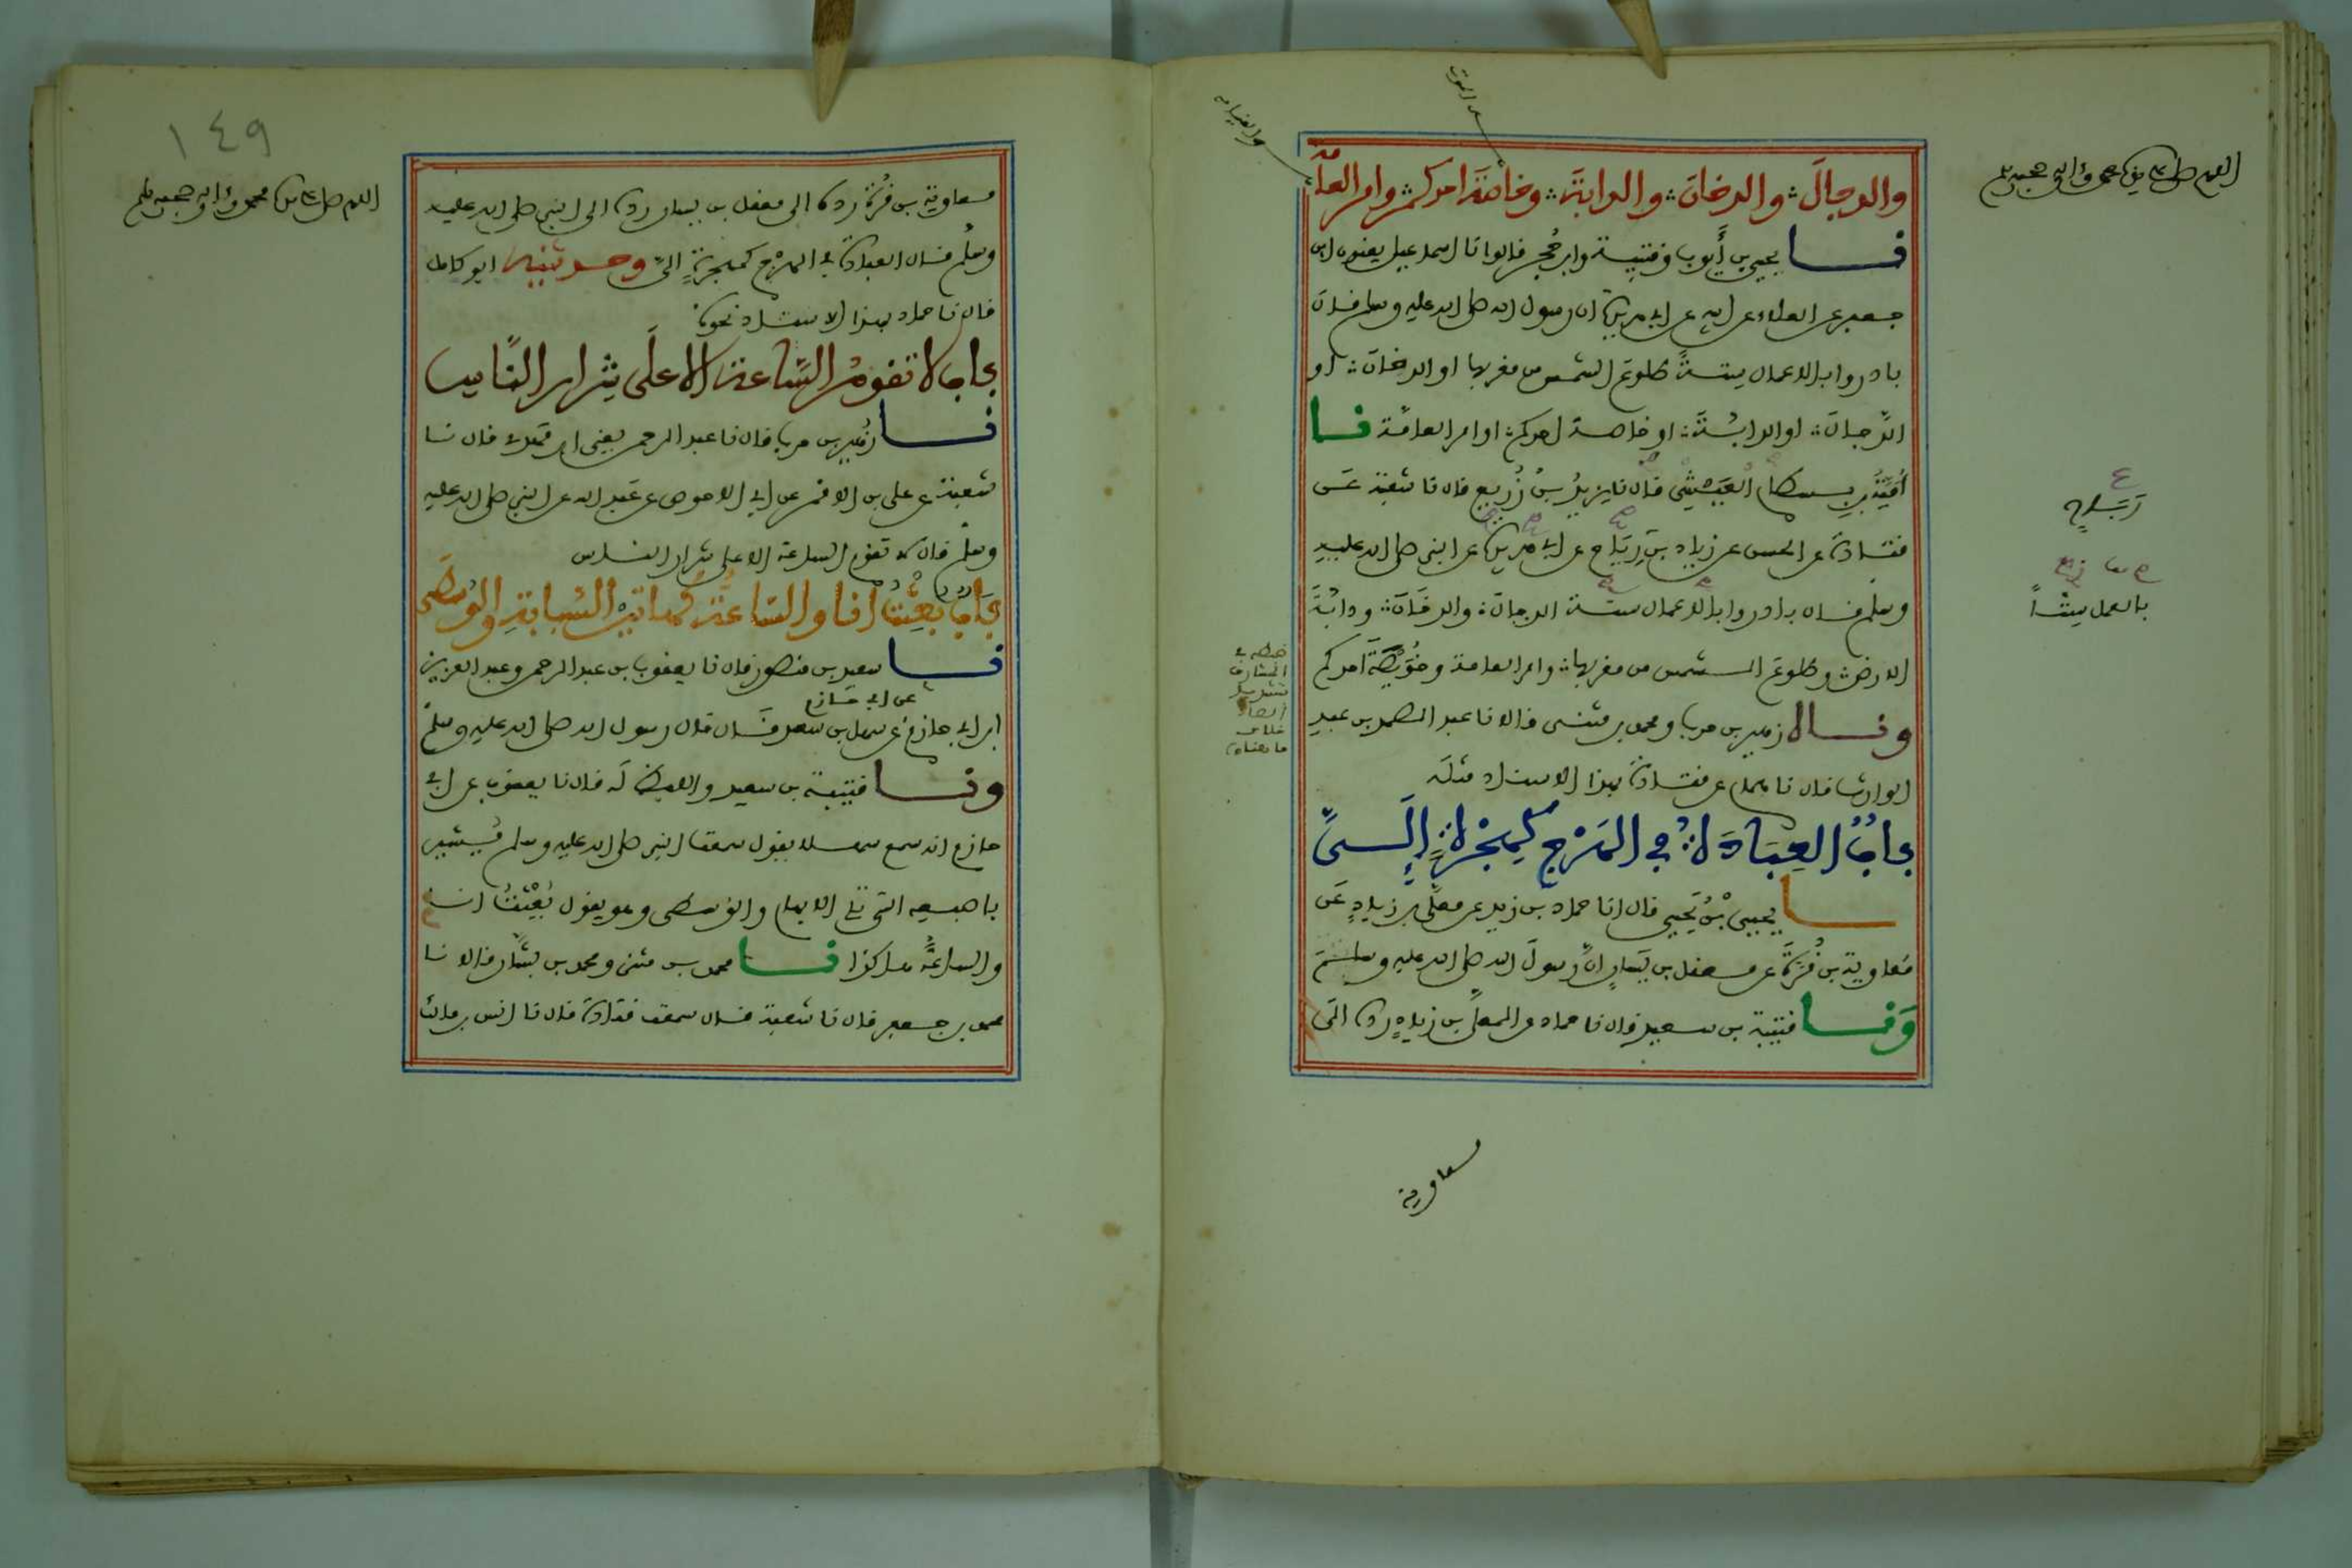 والدجالَ والدخانَ والدابةَ وخاصةَ احدكم وامرالعامّة
نا يحيى بن أيوب وقتيبة وابن حُجر قالوا نا اسماعيل يعنون ابن
جعفر عن العلاء عن ابيه عن ابى هريرة ان رسول الله صلى الله عليه وسلم قال
بادروا بالاعمال ستةً طلوع الشمس من مغربها او الدخانَ او
الدّجالَ او الدابّةَ او خاصة احدكم او امر العامّة نا
أُمَيَّةُ بن بسطام العَيْشِيُّ قال نا يزيدُ بنُ زُريع قال نا شعبة عن
قتادة عن الحسن عن زياد بن رِيَاح عن ابى هريرة عن النبى صلى الله عليه
وسلم قال بادروا بالاعمال ستة الدجالَ والدخانَ ودابّةَ
الارض وطلوعَ الشمس من مغربها وامرالعامة وخُوَيصّةَ احدكم
ونا لا زهير بن حرب ومحمد بن مثنى قالا نا عبد الصمد بن عبد
الوارث قال نا همام عن قتادة بهذا الاسناد مثلَه
بابُ العِبَادَةُ فى الهَرْجِ كهِجْرَةٍ إلَىَّ
نا يحيى بْنُ يَحيى قال انا حماد بن زيد عن معلَّى بن زيادٍ عَن
مُعاوية بن قُرَّةَ عن معقل بن يَسارٍ انَّ رسولَ الله صلى الله عليه وسلم
وَنا قتيبة بن سعيد قال نا حماد عن المعلَّى بن زيادٍ ردهُ الَى
معاوية
رَبَاح
بالعمل ستًّا
اللهم صل على سيدنا محمد وءاله وصحبه وسلم
١٤٩
اللهم صل على سيدنا محمد وءاله وصحبه وسلم
معاوية بن قُرَّة ردهُ الى معقل بن يسار ردهُ الى النبى صلى الله عليه
وسلم قال العبادة فى الهرْج كهجرةٍ الىَّ وحدثنيه ابو كامل
قال نا حماد بهذا الاسناد نحوَهُ
باب لا تقومُ السّاعة الا علَى شِرار النَّاس
نا زُهير بن حرب قال نا عبد الرحمن يعنى ابن مَهدى قال نا
شعبة عن على بن الاقمر عن ابى الاحوص عن عَبد الله عن النبى صلى الله عليه
وسلم قال لا تقوم الساعة الا على شرار الناس
بَابُ بُعِثْتُ أنا والسّاعَةُ كهاتيْن السَّبابةِ والوُسطَى
نا سعيد بن منصور قال نا يعقوب بن عبد الرحمن وعبد العزيز
عن ابى حازم
ابن ابى حازم عن سهل بن سعد قال قال رسول الله صلى الله عليه وسلم
ونا قتيبة بن سعيد واللفظ لَه قال نا يعقوب عن ابى
حازم انه سمع سهلا يقول سمعت النبى صلى الله عليه وسلم يُشير
باصبعه التى تلى الابهام والوسطى وهو يقول بُعِثتُ انا
والساعةُ هاكذا نا محمد بن مثنى ومحمد بن بشَّار قالا نا
محمد بن جعفر قال نا شعبة قال سمعت قتادة قال نا انس بن مالك